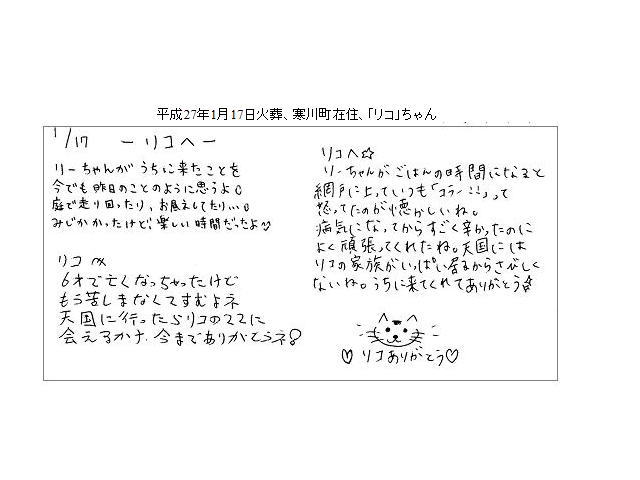 平成27年1月17日火葬、寒川町在住、「リコ」ちゃん
1/17 ーリコへー
リーちゃんがうちに来たことを
今でも昨日のことのように思うよ
庭で走り回ったり、お昼ねしてたり…
みじかかったけど、楽しい時間だったよ♡
リコへ
6才で亡くなっちゃったけど
もう苦しまなくてすむよネ
天国に行ったらリコのママに
会えるかナ。今までありがとうネ!
リコへ☆
リーちゃんがごはんの時間になると
網戸に上っていつも「コラー!!」って
怒ってたのが懐かしいね。
病気になってからすごく辛かったのに
よく頑張ってくれたね。天国には
リコの家族がいっぱい居るからさびしく
ないね。うちに来てくれてありがとう☆
♡リコありがとう♡